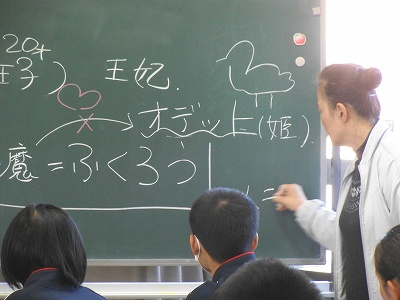 20才
王子) 王妃.
オデット(姫)
魔=ふくろう